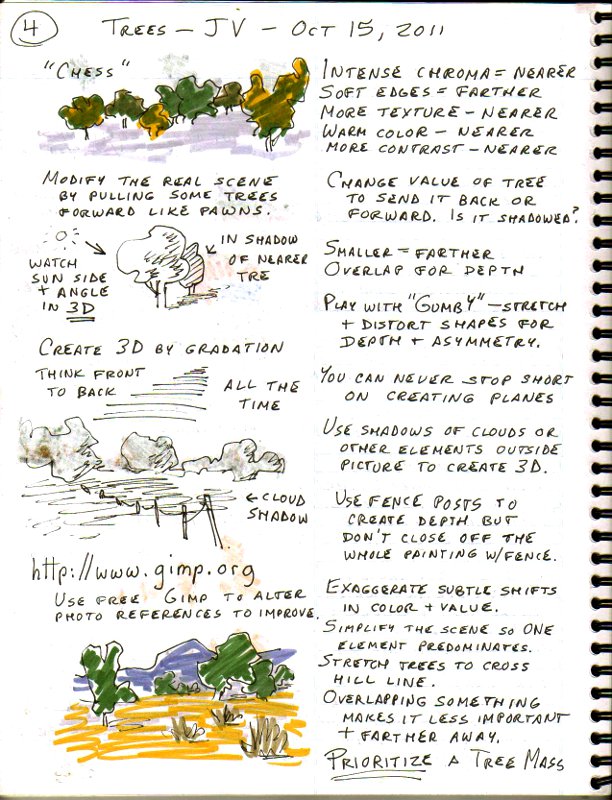 4
TREES - JV - OCT 15, 2011
"CHESS"
MODIFY THE REAL SCENE
BY PULLING SOME TREES
FORWARD LIKE PAWNS.
WATCH
SUN SIDE
+ ANGLE
IN 3D
IN SHADOW
OF NEARER
TRE
CREATE 3D BY GRADATION
THINK FRONT
TO BACK
ALL THE
TIME
CLOUD
SHADOW
http://www.gimp.org
USE FREE GIMP TO ALTER
PHOTO REFERENCES TO IMPROVE.
INTENSE CHROMA = NEARER
SOFT EDGES = FARTHER
MORE TEXTURE - NEARER
WARM COLOR - NEARER
MORE CONTRAST - NEARER
CHANGE VALUE OF TREE
TO SEND IT BACK OR
FORWARD. IS IT SHADOWED?
SMALLER = FARTHER
OVERLAP FOR DEPTH
PLAY WITH "GUMBY" - STRETCH
+ DISTORT SHAPES FOR
DEPTH + ASYMMETRY.
YOU CAN NEVER STOP SHORT
ON CREATING PLANES
USE SHADOWS OF CLOUDS OR
OTHER ELEMENTS OUTSIDE
PICTURE TO CREATE 3D.
USE FENCE POSTS TO
CREATE DEPTH BUT
DON'T CLOSE OFF THE
WHOLE PAINTING W/FENCE.
EXAGGERATE SUBTLE SHIFTS
IN COLOR + VALUE.
SIMPLIFY THE SCENE SO ONE
ELEMENT PREDOMINATES.
STRETCH TREES TO CROSS
HILL LINE.
OVERLAPPING SOMETHING
MAKES IT LESS IMPORTANT
+ FARTHER AWAY.
PRIORITIZE A TREE MASS